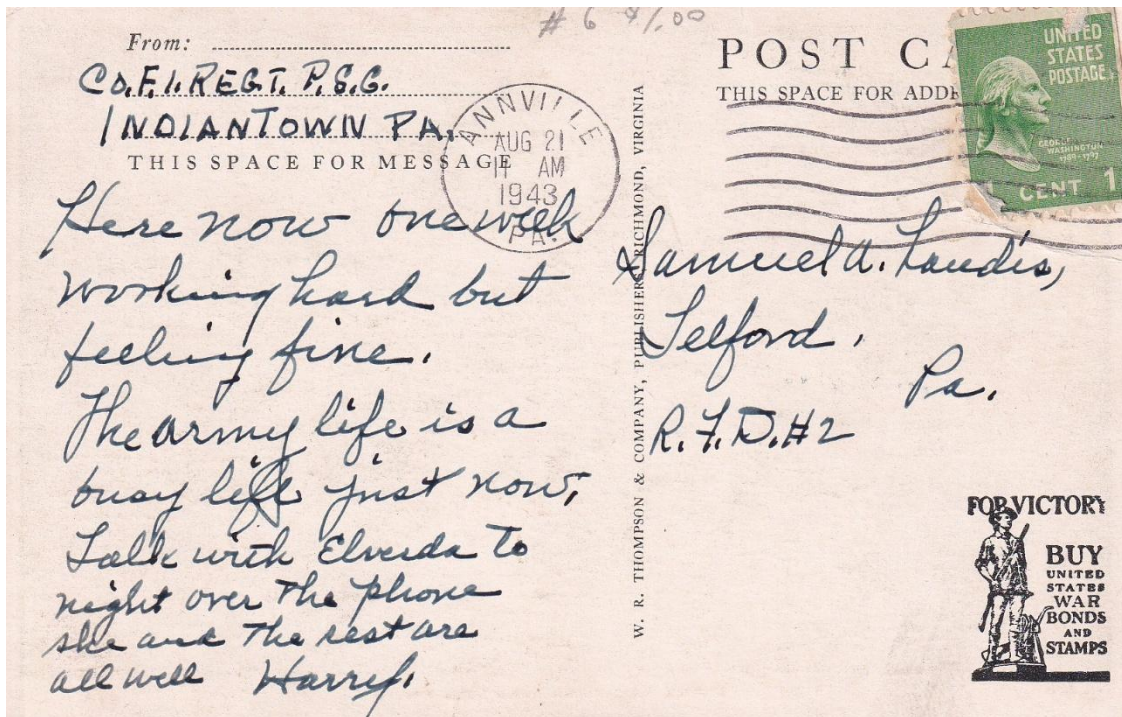 # 6 $1.00
From:
Co. F. 1. REGT. P.S.G.
INDIANTOWN PA.
THIS SPACE FOR MESSAGE
Here now one week
working hard but
feeling fine.
The army life is a
busy life just now,
Talk with Elverda to
night over the phone
she and the rest are
all well Harry.
ANNVILLE
AUG 21
11 AM
1943
PA.
W. R. THOMPSON & COMPANY, PUBLISHERS, RICHMOND, VIRGINIA
POST CA
THIS SPACE FOR ADDR
UNITED
STATES
POSTAGE
GEORGE
WASHINGTON
1789-1797
1 CENT 1
Samuel A. Landis,
Telford,
Pa.
R.F.D. #2
FOR VICTORY
BUY
UNITED
STATES
WAR
BONDS
AND
STAMPS